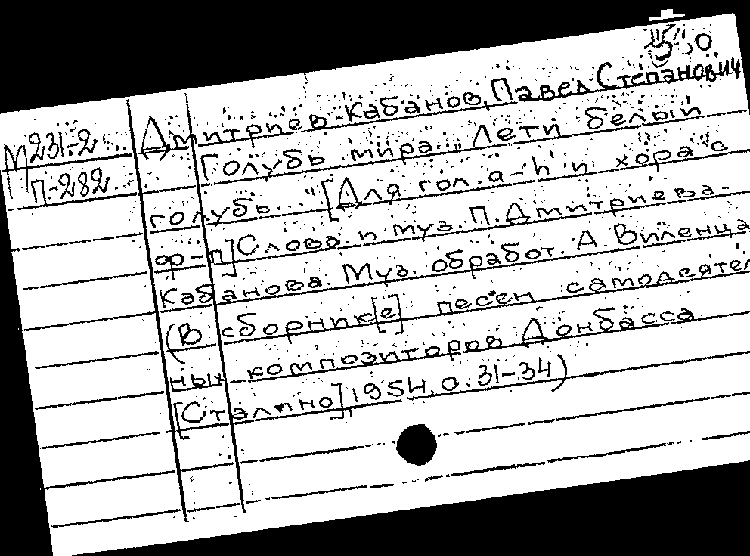 М231-2
П-282
Дмитриев-Кабанов, Павел Степанович
Голубь мира. "Лети белый
голубь..." [Для гол. a-h и хора с
ф-п] Слова и муз. П. Дмитриева-
Кабанова. Муз. обработ. А Виленца
(В сборник[е] песен самодеятель
ных композиторов Донбасса
[Сталино], 1954, с. 31-34)